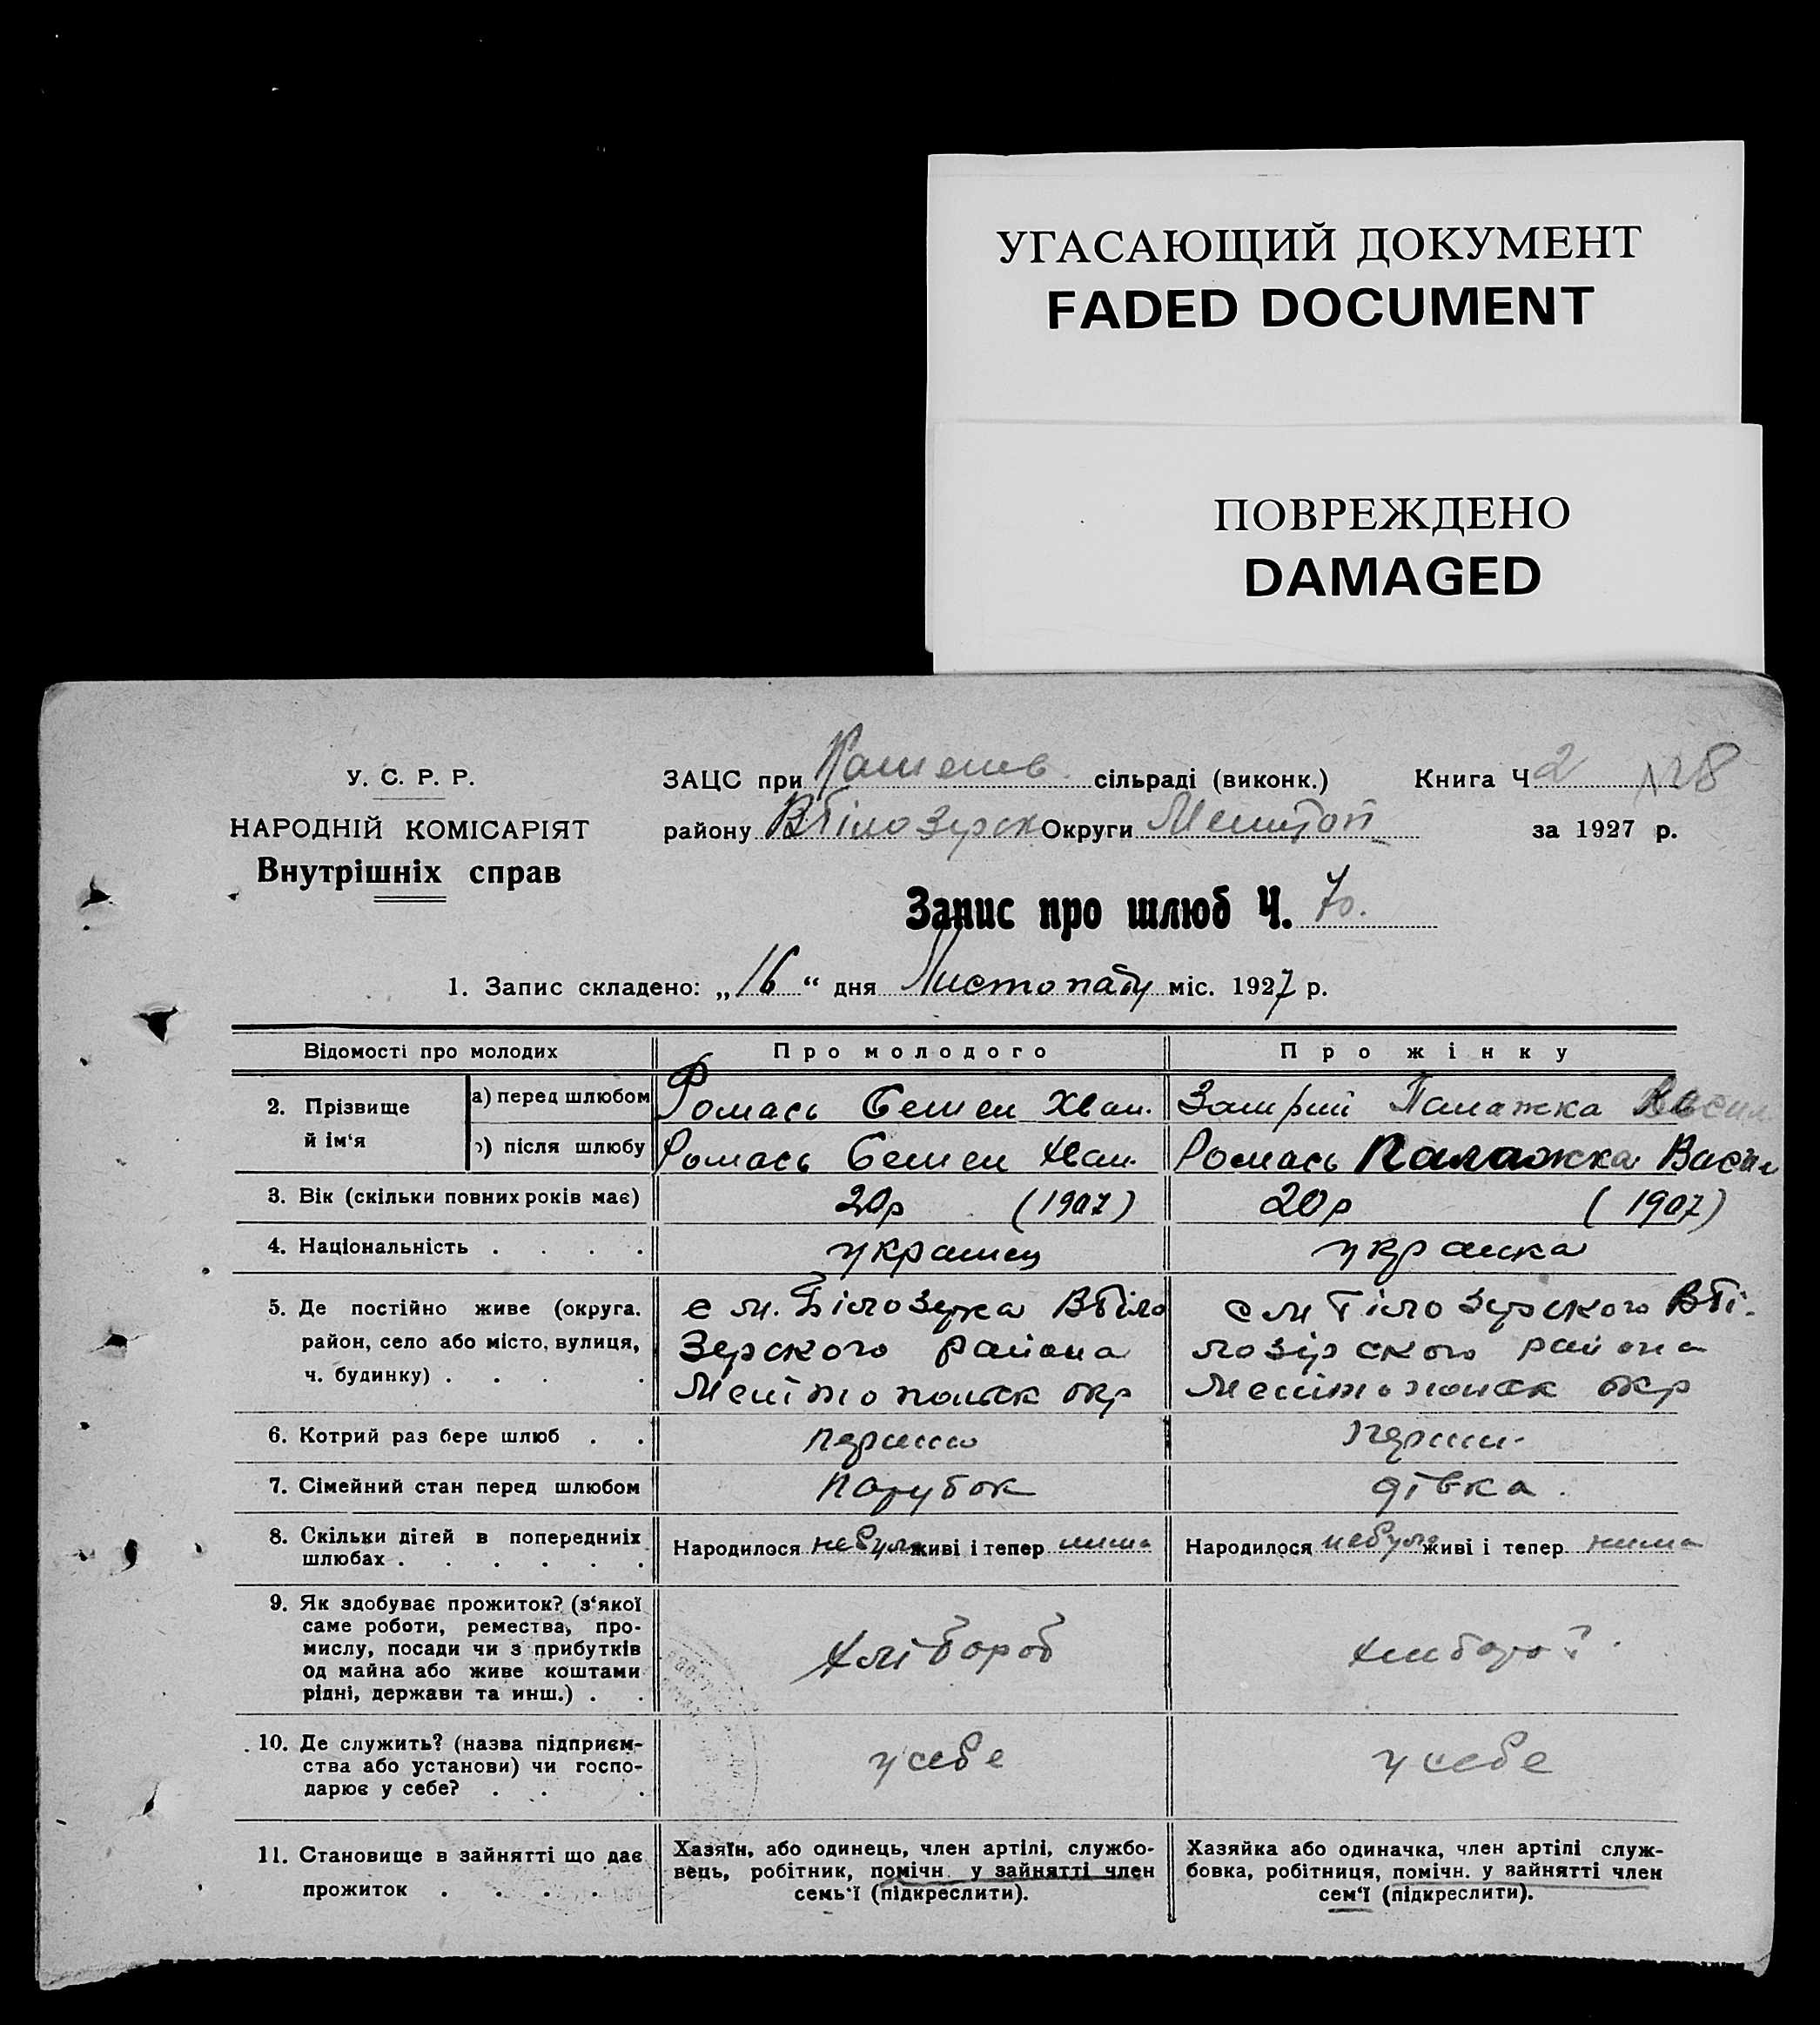 УГАСАЮЩИЙ ДОКУМЕНТ
FADED DOCUMENT
ПОВРЕЖДЕНО
DAMAGED
У. С. Р. Р.
НАРОДНІЙ КОМІСАРІЯТ
Внутрішніх справ
ЗАЦС при сільраді (виконк.) Книга Ч 2 №8
району Вбілозерск Округи Мелітоп
за 1927 р.
Запис про шлюб Ч. 70.
1. Запис складено: „16“ дня Листопаду міс. 1927 р.
Відомості про молодих
Про молодого
Про жінку
2. Прізвище й ім‘я
а) перед шлюбом
Ромась Семен Хван.
Палажка Васил
б) після шлюбу
Ромась Семен Хван.
Ромась Палажка Васил
3. Вік (скільки повних років має)
20р (1907)
20р (1907)
4. Національність . . . .
украинец
украинка
5. Де постійно живе (округа.
район, село або місто, вулиця,
ч. будинку) . . . .
с м. Білозерка Вбіло
Зерского района
Мелітопольск окр
с м Білозерского Вбі-
лозерского района
Мелітопольск окр
6. Котрий раз бере шлюб . .
перший
перший
7. Сімейний стан перед шлюбом
парубок
дівка.
8. Скільки дітей в попередниіх
шлюбах . . . . . .
Народилося небуло живі і тепер нима
Народилося небуло живі і тепер нима
9. Як здобуває прожиток? (з‘якої
саме роботи, ремества, про-
мислу, посади чи з прибутків
од майна або живе коштами
рідні, держави та инш.) . .
хлібороб
10. Де служить? (назва підприєм-
ства або установи) чи госпо-
дарює у себе? . . .
у себе
у себе
11. Становище в зайнятті що дає
прожиток . . . .
Хазяїн, або одинець, член артілі, службо-
вець, робітник, помічн. у зайнятті член
семь‘ї (підкреслити).
Хазяйка або одиначка, член артілі служ-
бовка, робітниця, помічн. у зайнятті член
сем‘ї (підкреслити).